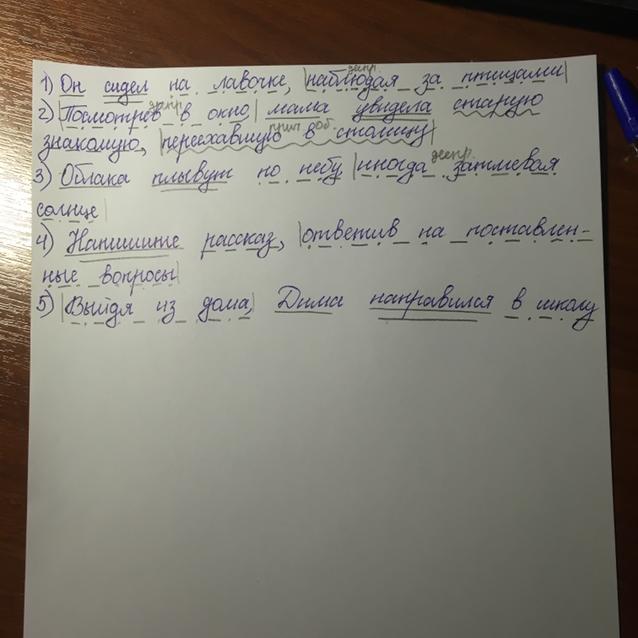 1) Он сидел на лавочке, |наблюдая за птицами|
2) |Посмотрев в окно| мама увидела старую
знакомую, |переехавшую в столицу|
3) Облака плывут по небу |иногда затмевая
солнце|
4) Напишите рассказ, |ответив на поставлен-
ные вопросы|
5) |Выйдя из дома,| Дима направился в школу